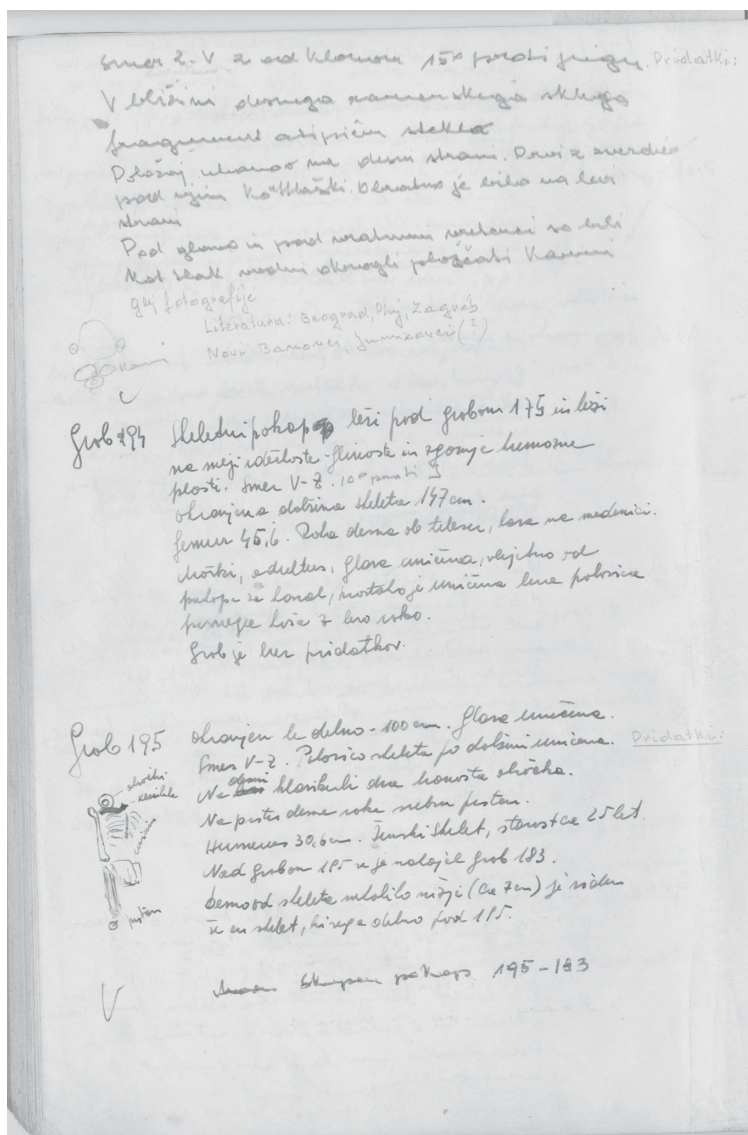 Smer Z-V z odklonom 15° proti jugu. Pridatki:
V bližini desnega ramenskega sklepa
fragment atipičen stekla
Položaj uhanov na desni strani. Prvi z zvezdico
pod njim Köttlaški. Obratno je bilo na levi
strani
Pod glavo in pod vratnimi vretenci so bili
kot tlak vodni okrogli ploščati kamni
glej fotografije
Literatura: Beograd, Ptuj, Zagreb
Novi Banovci, (?)
kamni
Grob 194 Skeletni pokop leži pod grobom 175 in leži
na meji rdečkaste gline in zgornje humozne
plasti. Smer V-Z. 10° proti J
ohranjena dolžina skeleta 147 cm.
femur 45,6. Roka desna ob telesu, leva na medenici.
Moški, adultus, glava uničena, verjetno od
pokopa za kanal, prav tako je uničena leva polovica
prsnega koša z levo roko.
Grob je brez pridatkov.
Grob 195 ohranjen le delno - 100 cm. Glava uničena.
Smer V-Z. Polovico skeleta po dolžini uničena. Pridatki:
obročki
klavikula
Na desni klavikuli dva bronasta obročka.
Na prstu desne roke srebrn prstan.
uničeno
Humerus 30,6 cm. Ženski skelet, starost ca 25 let.
Nad grobom 195 se je nahajal grob 183.
Desno od skeleta nekoliko nižje (ca 7 cm) je viden
prstan
še en skelet, ki sega delno pod 195.
Skupen pokop 195-183